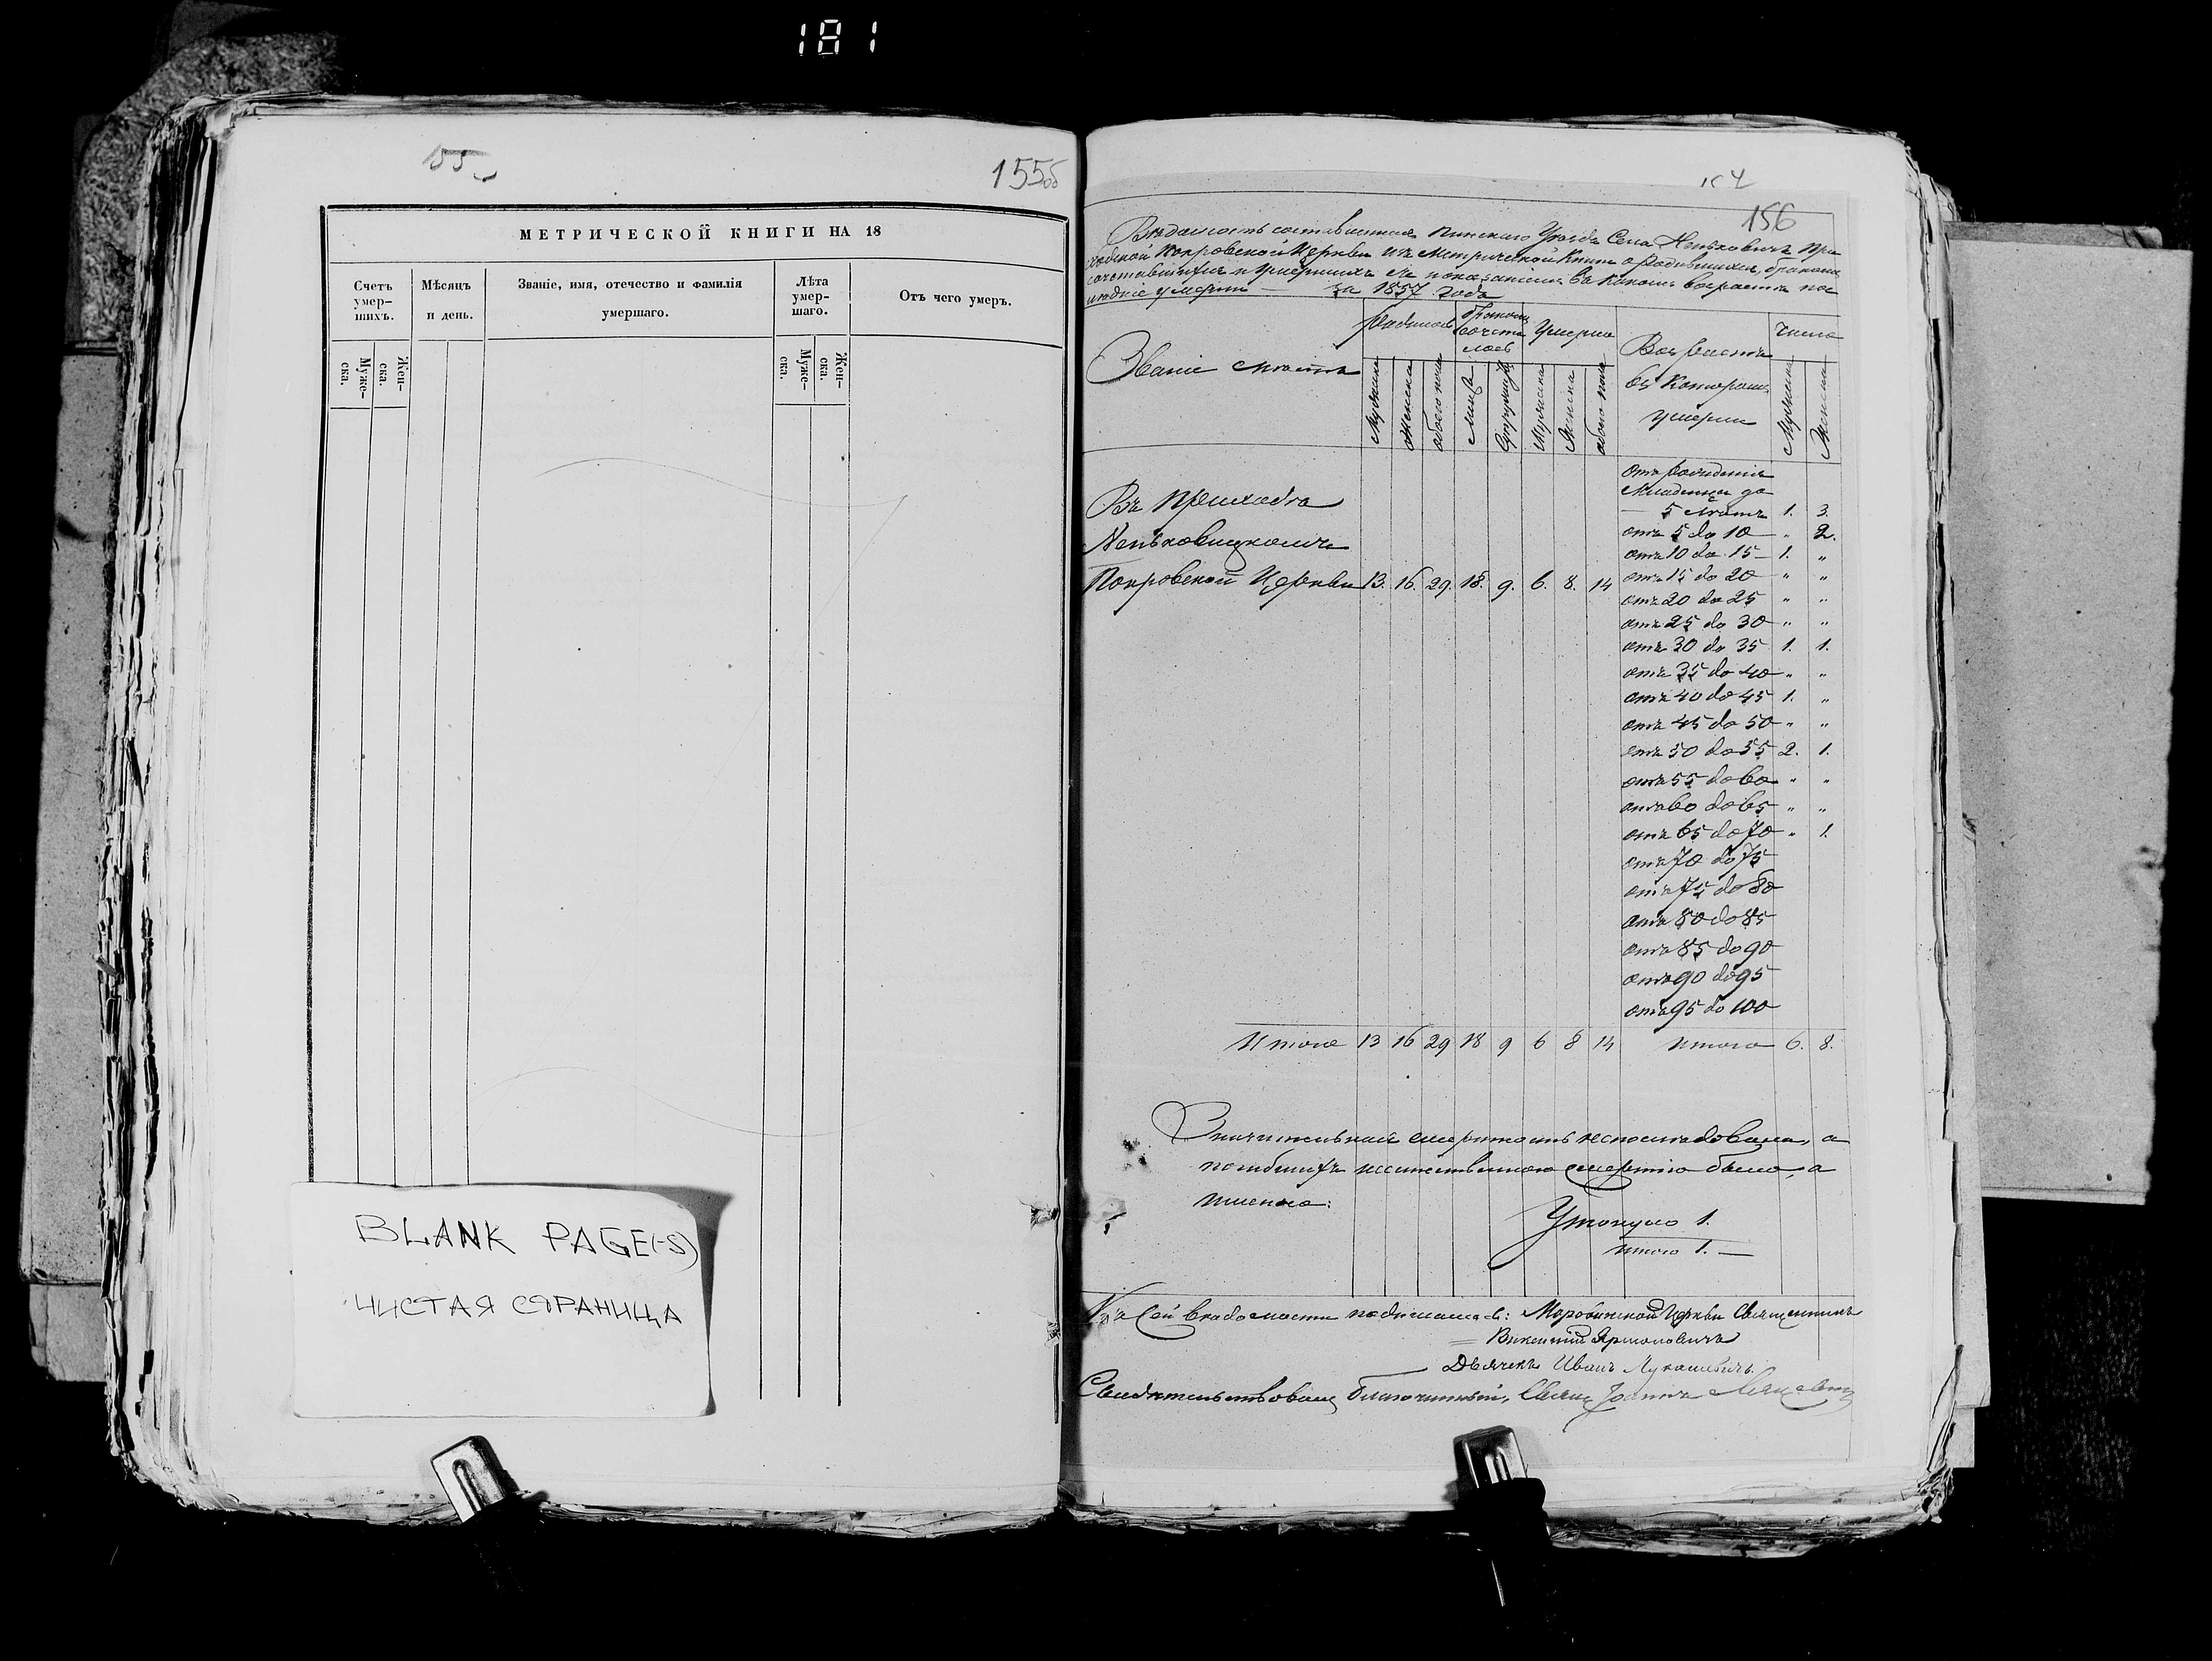 181
155об
МЕТРИЧЕСКОЙ КНИГИ НА 18
Счетъ умер-
шихъ.
Мѣсяцъ
и день.
Званіе, имя, отечество и фамилія
умершаго.
Лѣта
умер-
шаго.
Отъ чего умеръ.
Муже-
ска.
Жен-
ска.
Муже-
ска.
Жен-
ска.
BLANK PAGE(-S)
ЧИСТАЯ СТРАНИЦА
156
Вѣдомость составленная Пинскаго Уѣзда Села Неньковичъ При
ходской Покровской Церкви изъ Метрической Книги о Родившихся, бракомъ
сочетавшихся и Умершихъ съ показаніемъ въ какомъ возрастѣ по
слѣдніе умерли — за 1857 года
Званіе мѣста
Родилось
бракомъ
сочета
лось
Умерло
Возрастъ
въ Которомъ
умерли
Число
Мужеска
Женска
обоего пола
Лицъ
Супружествъ
Мужеска
Женска
обоего пола
Мужеска
Женска
Въ Приходѣ
Неньковицкомъ
Покровской Церкви 13. 16. 29. 18. 9. 6. 8. 14
отъ рожденія
младенца до
5 лѣтъ 1. 3.
отъ 5 до 10 " 2.
отъ 10 до 15 1. "
отъ 15 до 20 " "
отъ 20 до 25 " "
отъ 25 до 30 " "
отъ 30 до 35 1. 1.
отъ 35 до 40 " "
отъ 40 до 45 1. "
отъ 45 до 50 " "
отъ 50 до 55 2. 1.
отъ 55 до 60 " "
отъ 60 до 65 " "
отъ 65 до 70 " 1.
отъ 70 до 75
отъ 75 до 80
отъ 80 до 85
отъ 85 до 90
отъ 90 до 95
отъ 95 до 100
Итого 13 16 29 18 9 6 8 14 Итого 6. 8.
Значительная смертность непослѣдовала, а
погибшихъ неестественною смертію было, а
именно:
Утонуло 1.
Итого 1. —
Къ Сей вѣдомости подписались: Церкви Священникъ
Викентій Ярмоловичъ
Дьячекъ Иванъ Лукашевичъ
Свидѣтельствовалъ благочинный, Свящ Іоаннъ